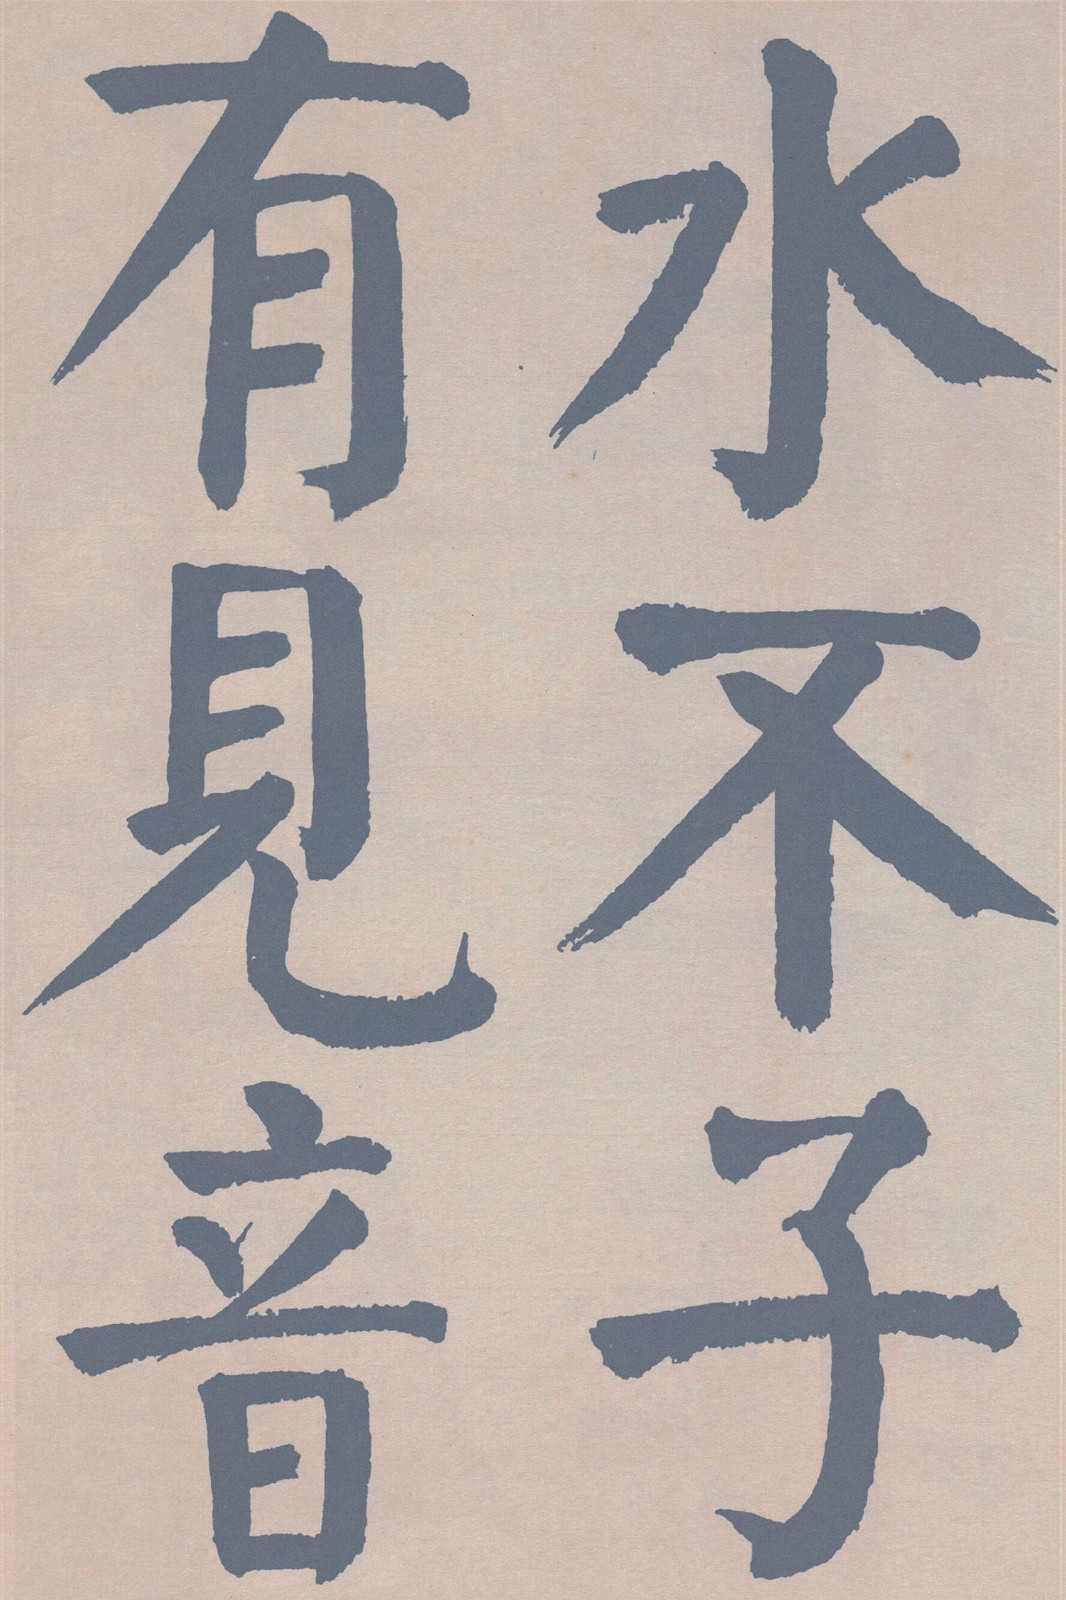 水不子
有見音